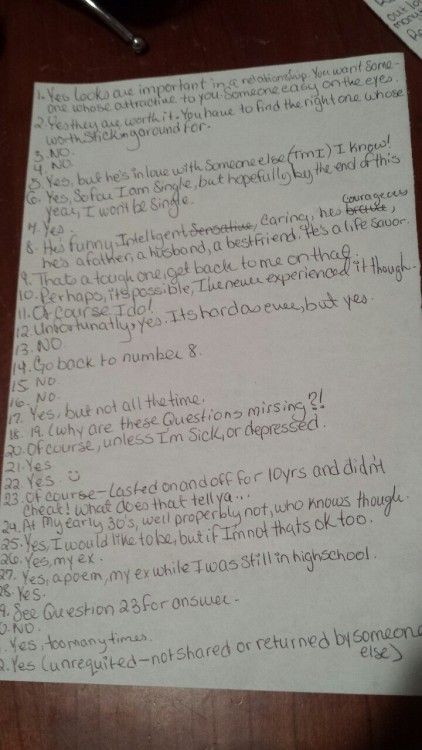 out lo
1. Yes looks are important in a relationship. You want some-
one whose attractive to you. Someone easy on the eyes.
2. Yes they are worth it. You have to find the right one whose
worth sticking around for.
3. NO.
4. NO
5. Yes, but he's in love with someone else (TMI) I know!
6. Yes, So far I am single, but hopefully by the end of this
year, I won't be single.
7. Yes.
courageous
8. He's funny, Intelligent, Sensative, caring, hes brave,
he's a father, a husband, a bestfriend. He's a life savor.
9. That's a tough one, get back to me on that.
10. Perhaps, its possible, I haveve experienced it though.
11. Of course I do!
12. Unfortunatly, yes. Its hard as ever, but yes.
13. NO.
14. Go back to number 8.
15. NO.
16. NO.
17. Yes, but not all the time.
18. 19. (why are these Questions missing?!
20. Of course, unless I'm sick, or depressed.
21. Yes
22. Yes. ☺
23. Of course - Lasted on and off for 10yrs and didn't
cheat! What does that tell ya...
24. At my early 30's, well properbly not, who knows though.
25. Yes, I would like to be, but if I'm not thats ok too.
26. Yes, my ex.
27. Yes, a poem, my ex while I was still in highschool.
28. Yes.
9. See Question 23 for answer.
0. NO.
. Yes, too many times.
2. Yes (unrequited - not shared or returned by someone
else)